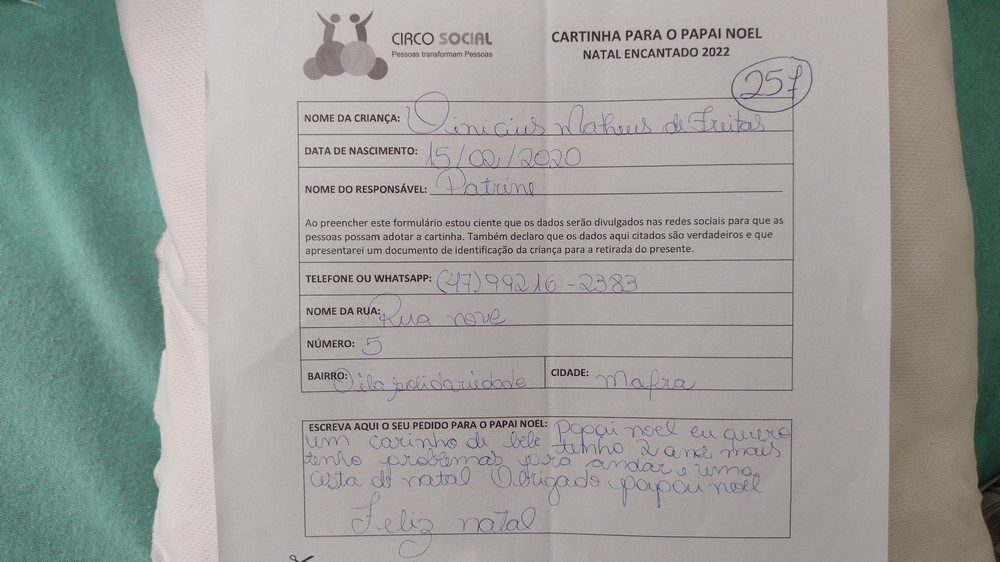 CIRCO SOCIAL
Pessoas transformam Pessoas
CARTINHA PARA O PAPAI NOEL
NATAL ENCANTADO 2022
257
NOME DA CRIANÇA: Vinicius Matheus de Freitas
DATA DE NASCIMENTO: 15/02/2020
NOME DO RESPONSÁVEL: Patrine
Ao preencher este formulário estou ciente que os dados serão divulgados nas redes sociais para que as
pessoas possam adotar a cartinha. Também declaro que os dados aqui citados são verdadeiros e que
apresentarei um documento de identificação da criança para a retirada do presente.
TELEFONE OU WHATSAPP: (47)99216-2383
NOME DA RUA: Rua nove
NÚMERO: 5
BAIRRO: Vila solidariedade CIDADE: Mafra
ESCREVA AQUI O SEU PEDIDO PARA O PAPAI NOEL: Papai noel eu quero
um carinho de bebe tenho 2 anos mais
tenho problemas pra andar e uma
cesta de natal Obrigado papai noel
Feliz natal